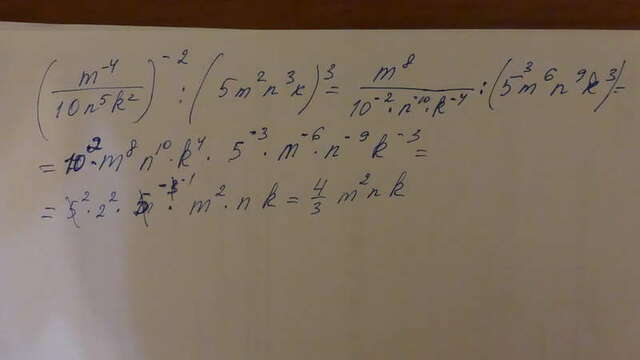 (m⁻⁴/10n⁵k²)⁻² : (5m²n³k)³ = m⁸/10⁻²·n⁻¹⁰·k⁻⁴ : (5³m⁶n⁹k³) =
= 10²·m⁸n¹⁰·k⁴·5⁻³·m⁻⁶·n⁻⁹k⁻³ =
= 5²·2²·5⁻³·m²·nk = 4/3 m²nk